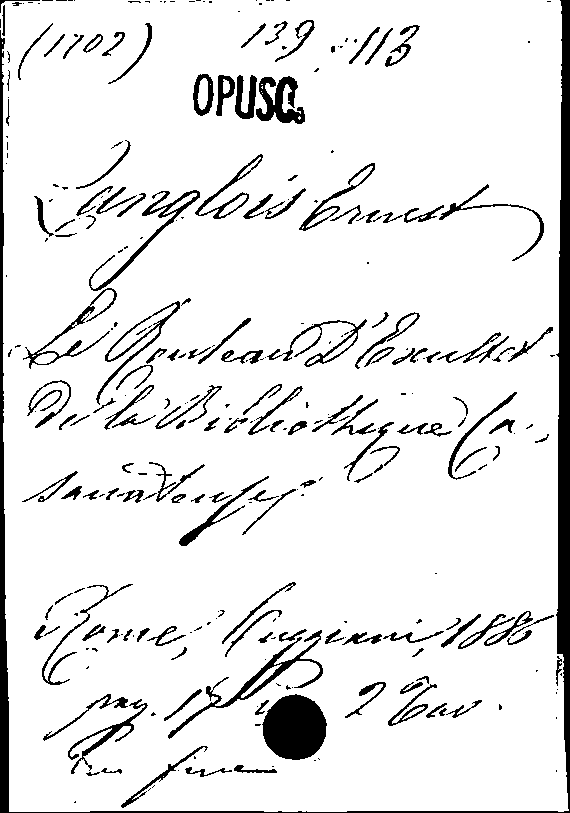 (1702) 139 113
OPUSC.
Langlois Ernest
Le Rouleau D'Exultet
De la Bibliothèque Ca-
sanatense
Rome, Cuggiani, 1886
pag. 17 2 Tav.
fine